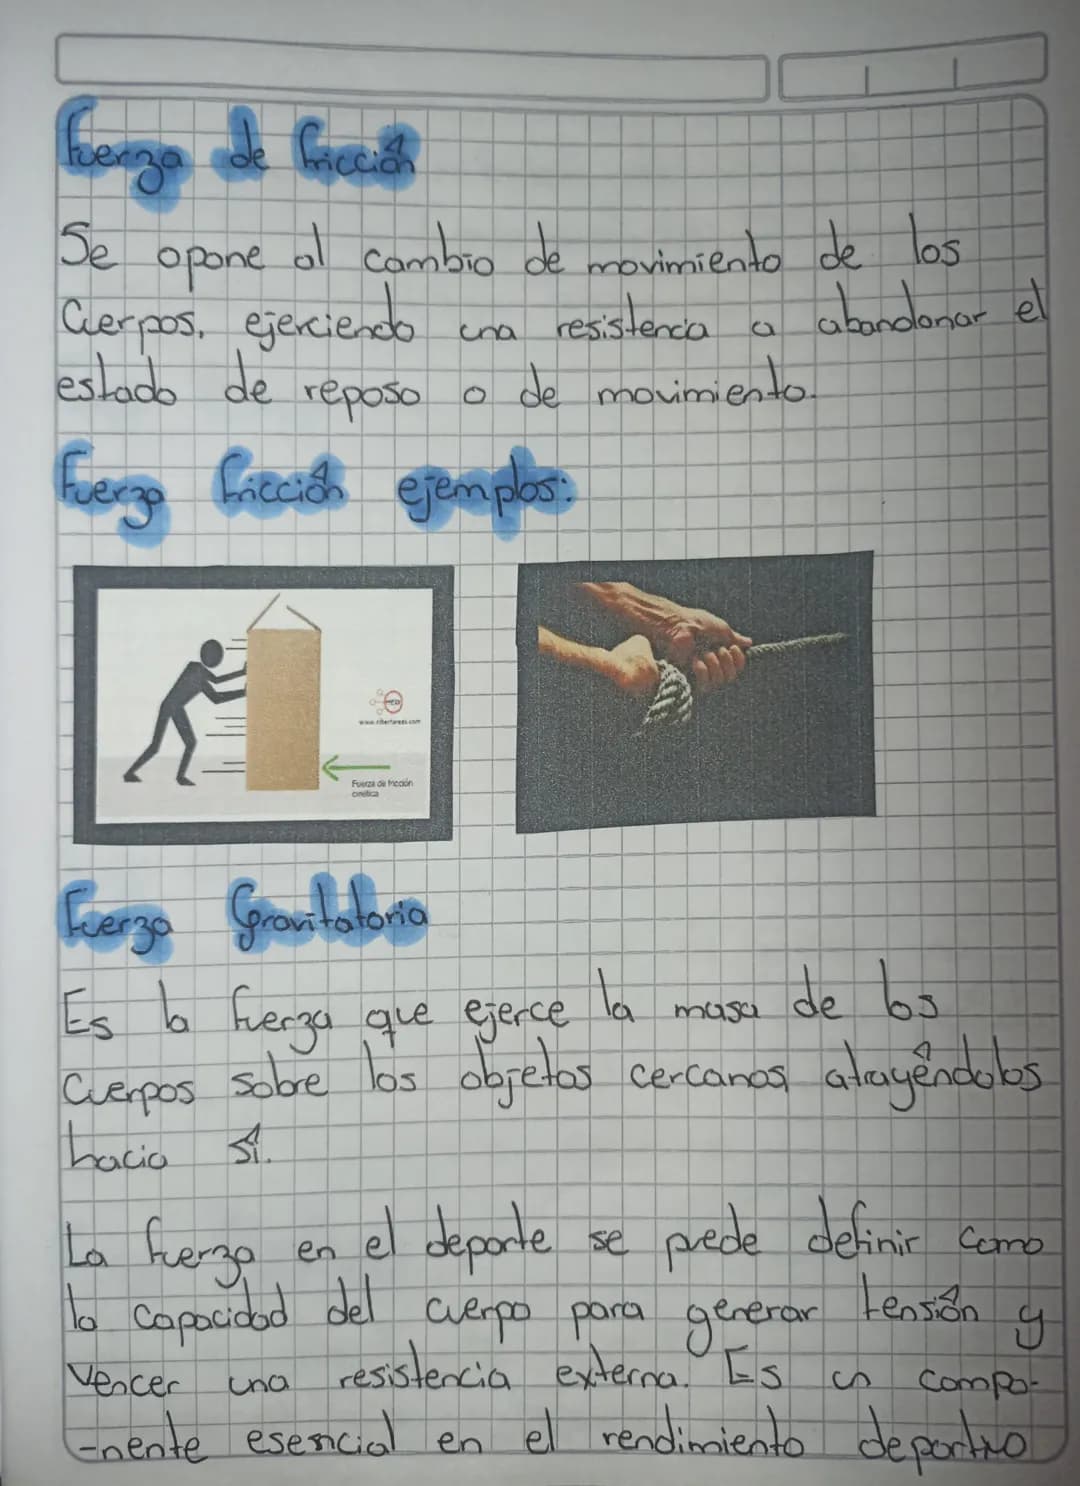 Fuerza de fricción
Se opone al cambio de movimiento de los
Cuerpos, ejerciendo una resistencia a abandonar el
estado de reposo o de movimiento.
Fuerza fricción ejemplos:
www.nibertareas.com
Fuerza de fricción
cinética
Fuerza Gravitatoria
Es la fuerza que ejerce la masa de los
Cuerpos sobre los objetos cercanos, atrayéndolos
hacia sí.
La fuerza en el deporte se puede definir como
la capacidad del cuerpo para generar tensión y
Vencer una resistencia externa. Es un compo-
-nente esencial en el rendimiento deportivo